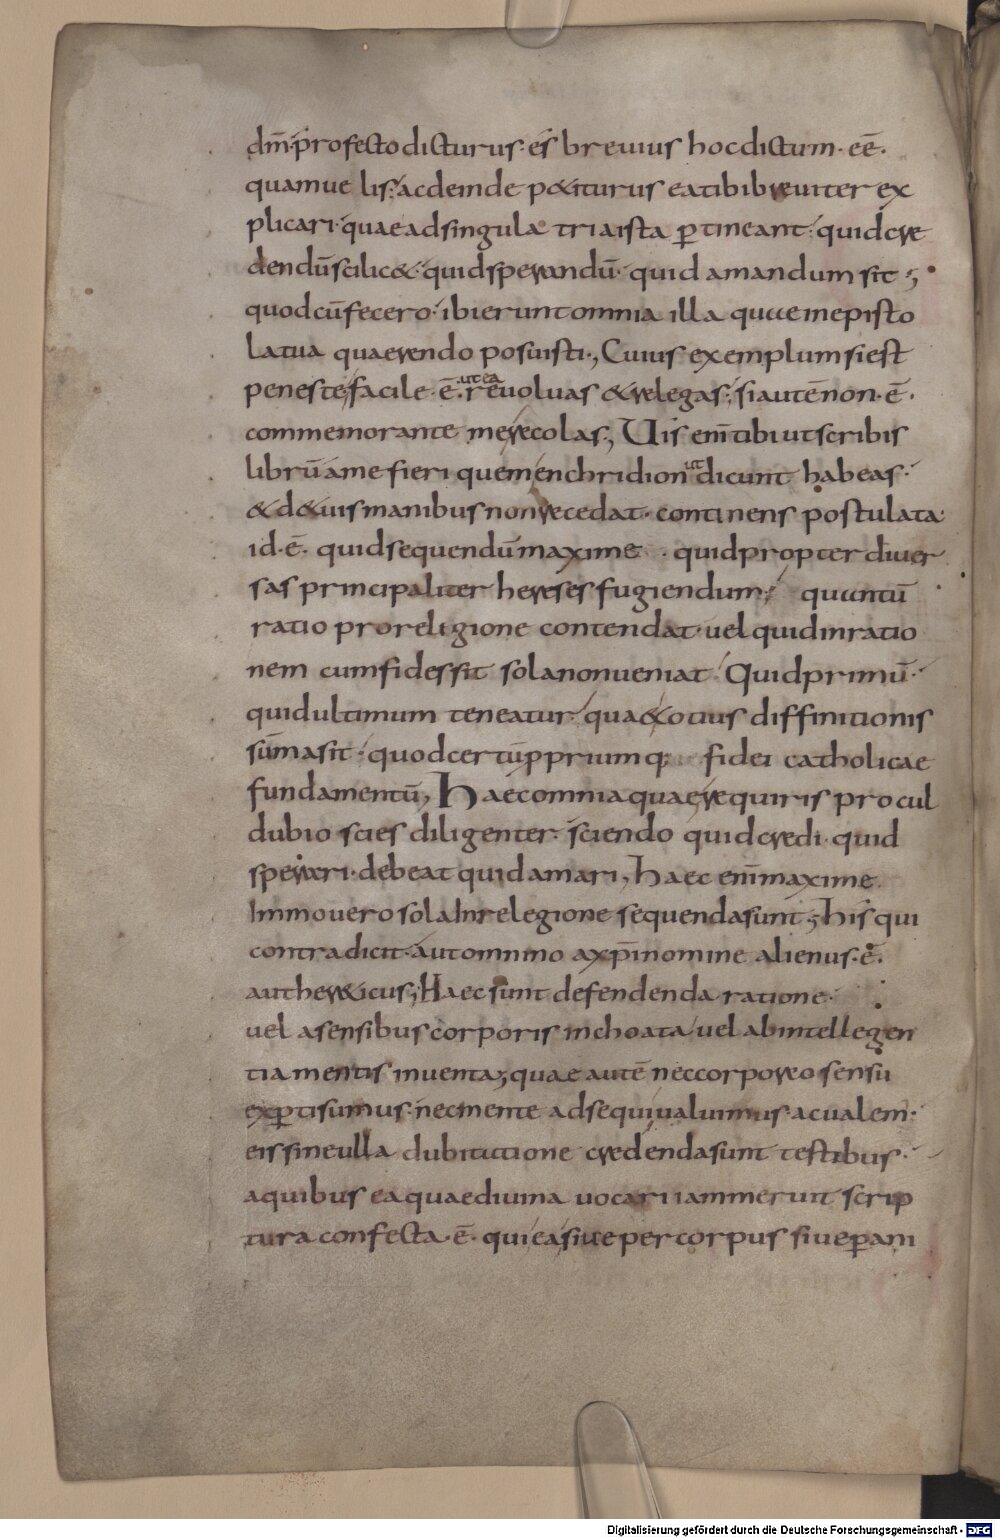 dm̄·profecto dicturus·es breuius hoc dictum·eē·
quamuelis·ac deinde p&iturus ea tibi breuiter ex
plicari·quae ad singula tria ista ꝑtineant·quid cre
dendū scilic&·quid sperandū·quid amandum sit;
quod cū fecero·ibi erunt omnia illa quae in episto
la tua quaerendo posuisti; Cuius exemplum si est
penes te facile·ē·ut ea reuoluas & relegas; si autē non·ē·
commemorante me recolas; Uis enī tibi ut scribis
librū a me fieri quem enchridion ut dicunt habeas·
& d& uis manibus non recedat·continens postulata·
id·ē·quid sequendū maxime·quid propter diuer
sas principaliter hereses fugiendum; quantū
ratio pro religione contendat·uel quid in ratio
nem cum fides sit sola non ueniat·Quid primū·
quid ultimum teneatur·quae & otius diffinitionis
sūma sit·quod certū ꝓpriumq; fidei catholicae
fundamentū; Haec omnia quae requiris procul
dubio scies diligenter·sciendo quid credi·quid
sperari·debeat quid amari; haec enī maxime
Immo uero sola In relegione sequenda sunt; his qui
contradicit·aut omnino a xp̄i nomine alienus·ē·
aut her&icus; Haec sunt defendenda ratione·
uel a sensibus corporis inchoata·uel ab intellegen
tia mentis inuenta; quae autē nec corporeo sensu
exꝑti sumus·nec mente adsequi ualuimus·ac ualem·
eis sine ulla dubitatione credenda sunt testibus·
a quibus ea quae diuina uocari iam meruit scrip
tura confecta·ē·qui ea siue per corpus siue ꝑ ani
Digitalisierung gefördert durch die Deutsche Forschungsgemeinschaft - DFG